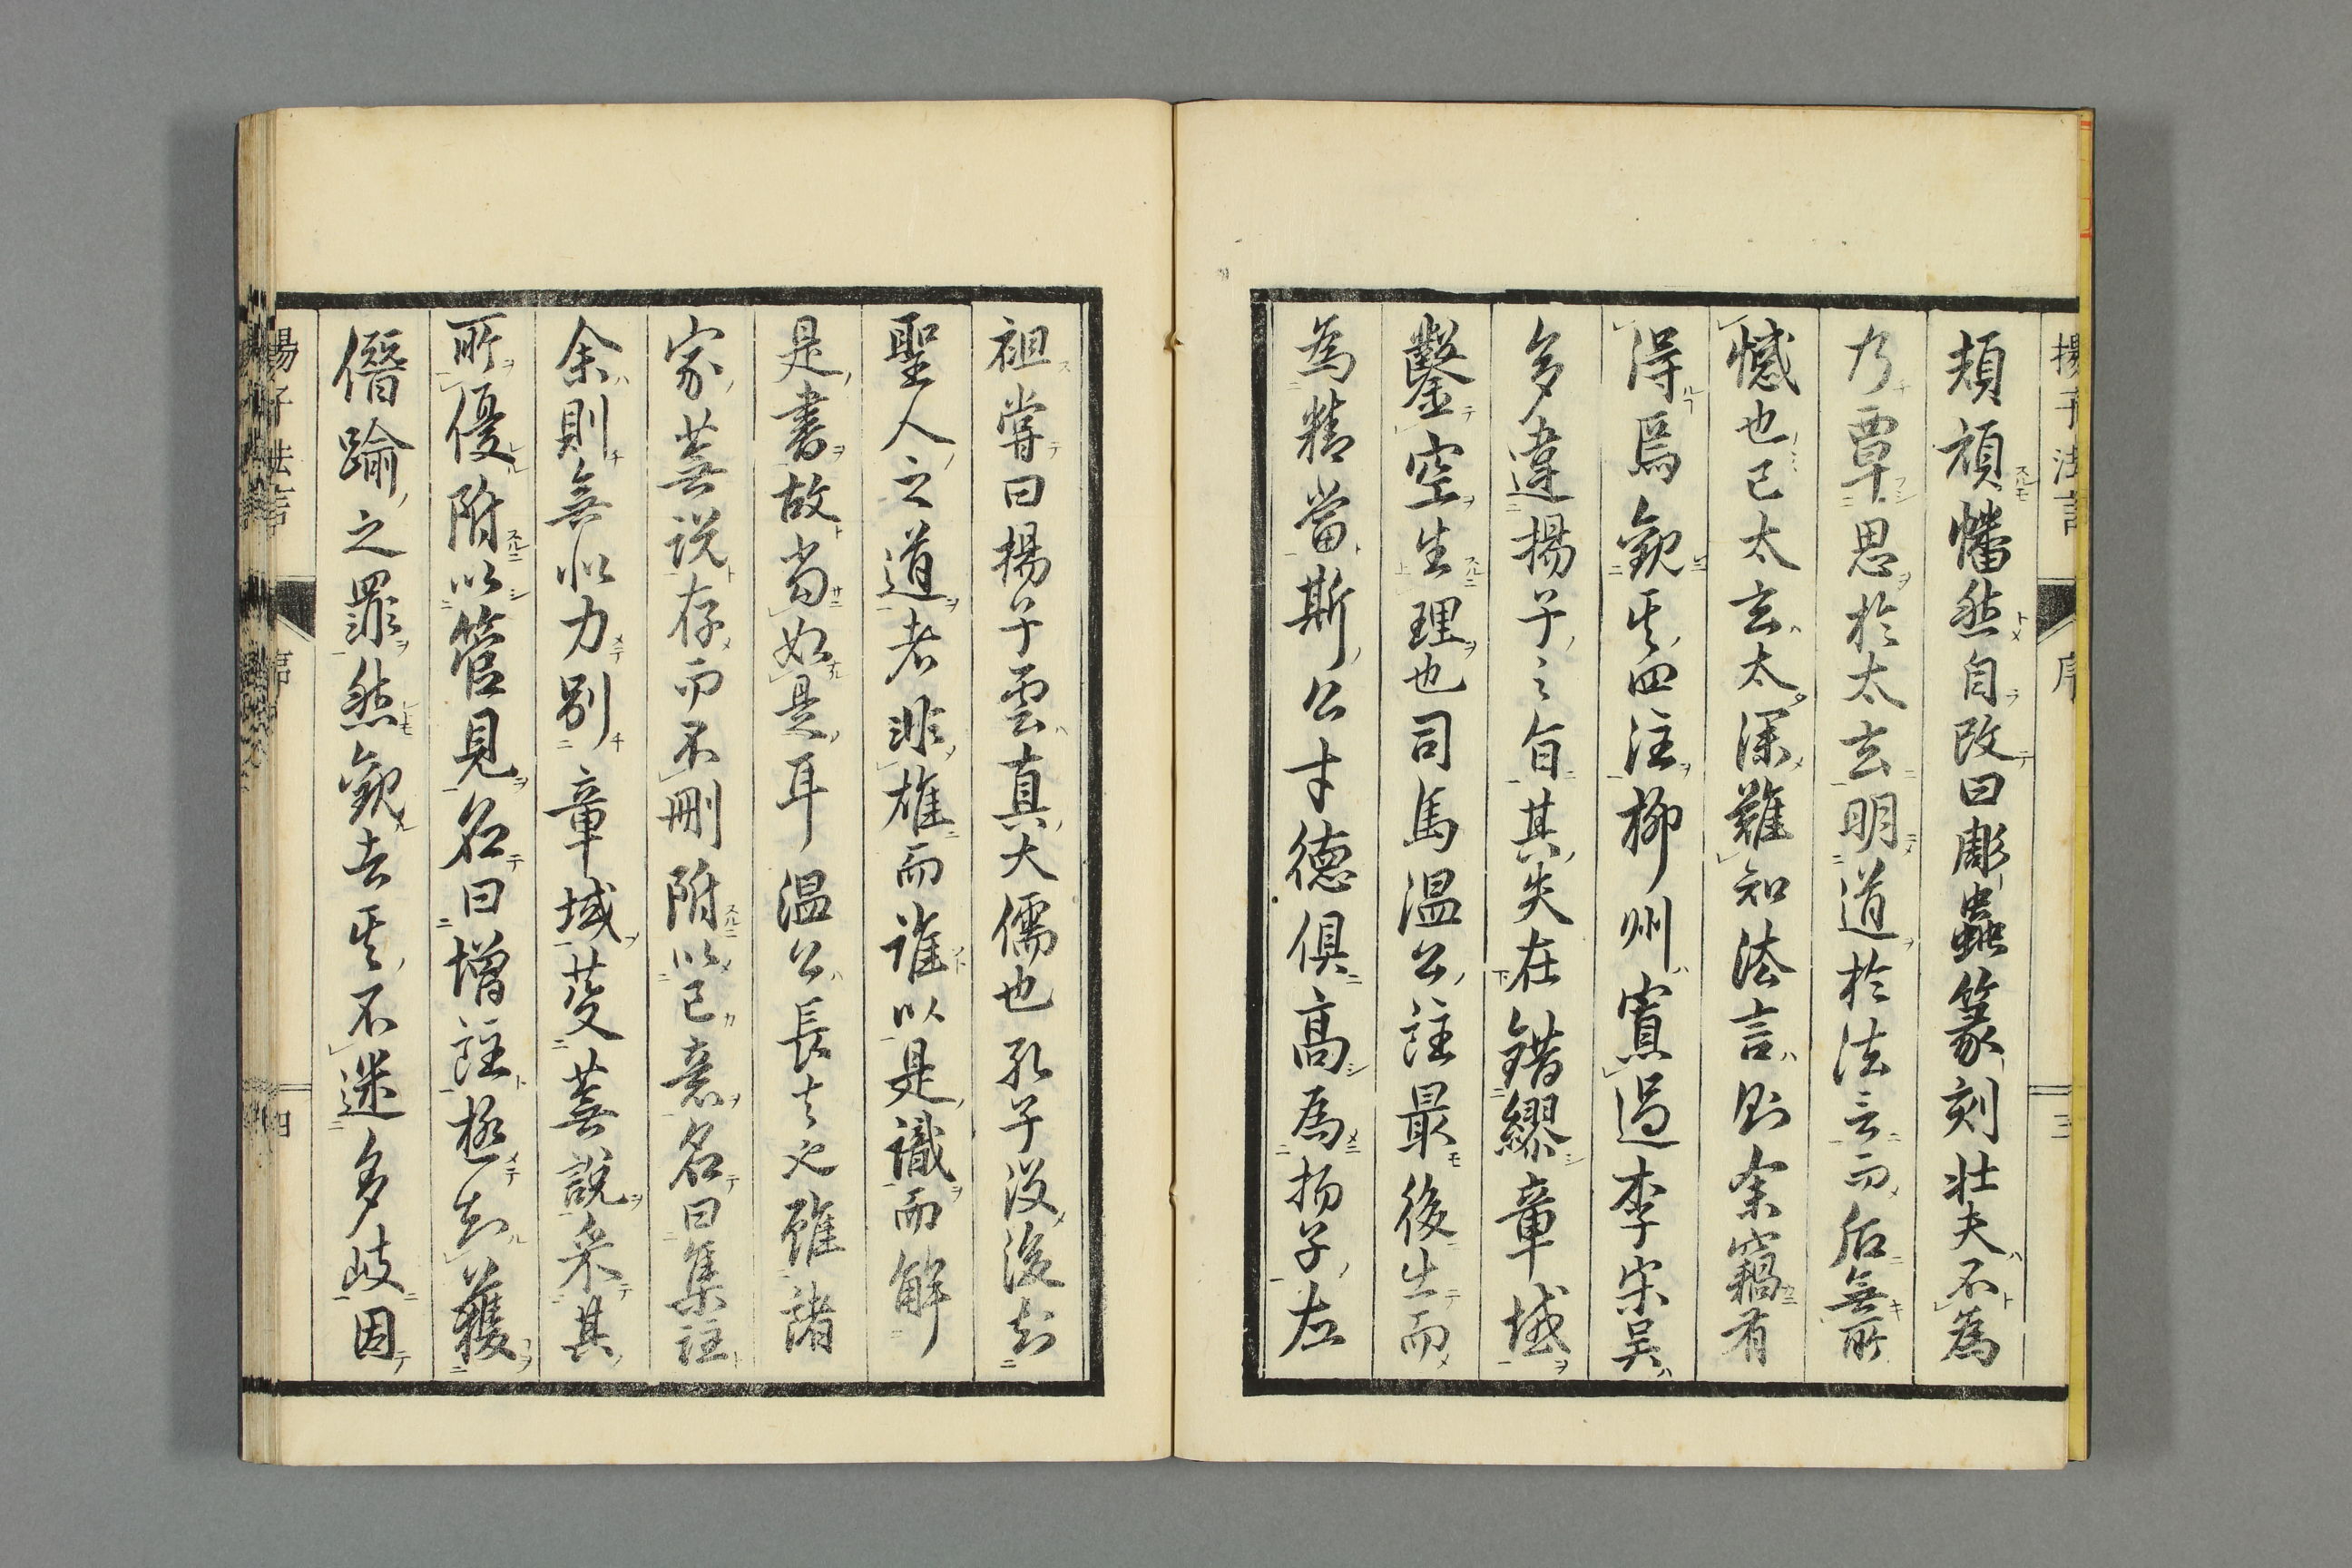 揚子法言 序 三
頬頏幡然自改曰彫蟲篆刻壮夫不為
乃覃思於太玄明道於法言而后無所
憾也已太玄太深難知法言則余竊有
得焉観其四注柳州寡過李宋吴
多違揚子之旨其失在錯繆章域
鑿空生理也司馬温公註最後出而
為精當斯公才徳俱髙為揚子左
祖嘗曰揚子雲真大儒也孔子没後知
聖人之道者非雄而誰以是識而解
是書故尚如是耳温公長者也雖諸
家蕪説存而不刪附以己意名曰集註
余則無似力別章域芟蕪説采其
所優附以管見名曰増註極知獲
僭踰之罪然観者其不迷多岐因
揚子法言 序 四